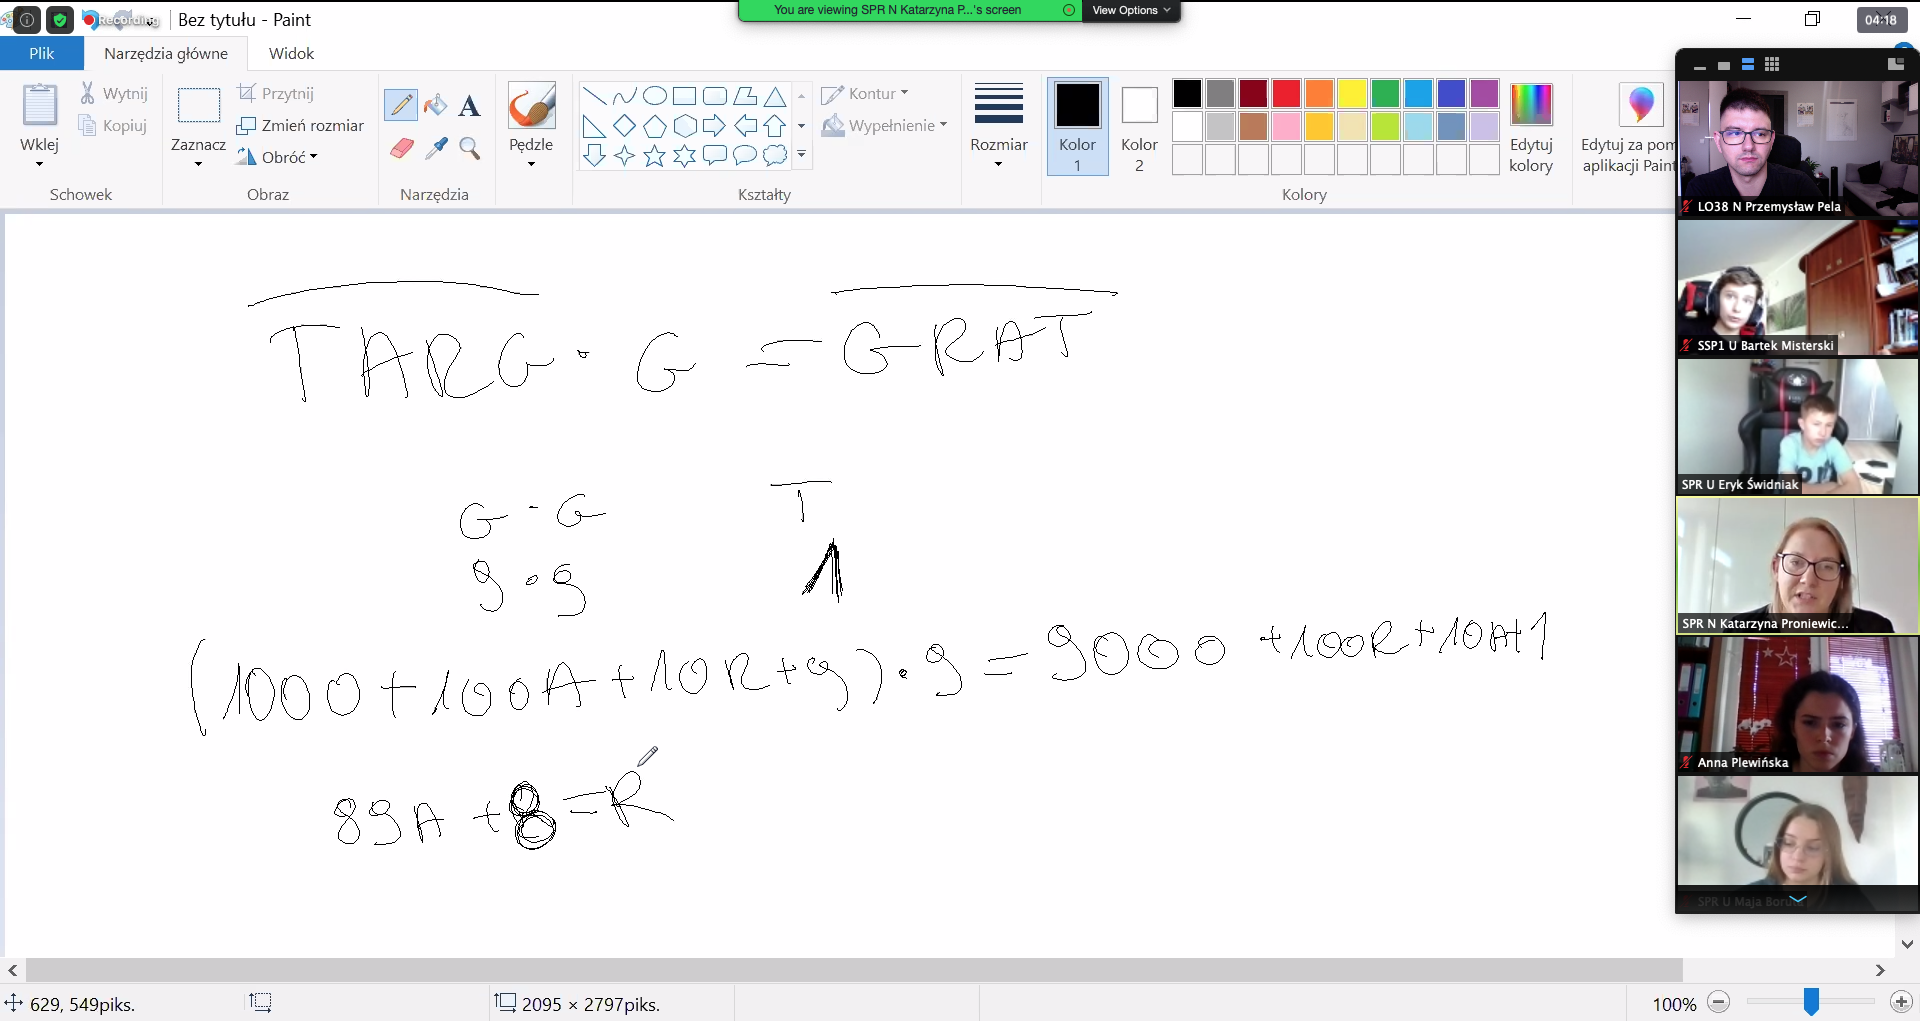 Recording
Bez tytułu - Paint
You are viewing SPR N Katarzyna P...'s screen
View Options
04:18
Plik
Narzędzia główne
Widok
Wklej
Wytnij
Kopiuj
Schowek
Zaznacz
Przytnij
Zmień rozmiar
Obróć
Obraz
A
Narzędzia
Pędzle
Kształty
Kontur
Wypełnienie
Rozmiar
Kolor 1
Kolor 2
Kolory
Edytuj kolory
Edytuj za pom
aplikacji Paint
TARG · G = GRAT
G · G T
9 · 9 1
(1000 + 100A + 10R + 9) · 9 = 9000 + 100R + 10A + 1
89A + 8 = R
LO38 N Przemysław Pela
SSP1 U Bartek Misterski
SPR U Eryk Świdniak
SPR N Katarzyna Proniewic...
Anna Plewińska
629, 549piks.
2095 × 2797piks.
100%